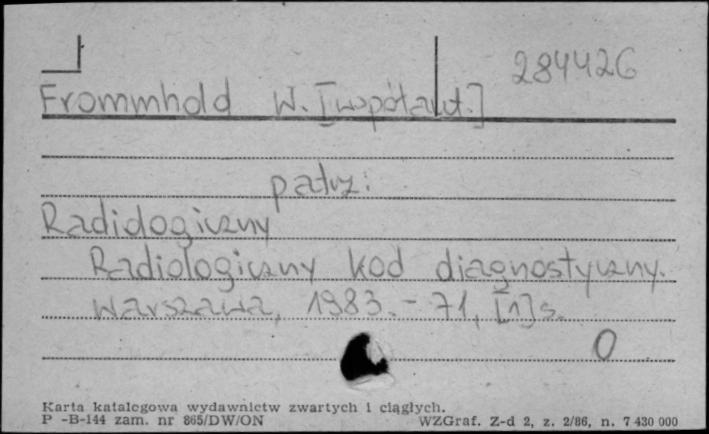 284426
Frommhold W. [współaut.]
patrz:
Radiologiczny
Radiologiczny kod diagnostyczny.
Warszawa, 1983. - 71, [1] s.
O
Karta katalogowa wydawnictw zwartych i ciągłych.
P -B-144 zam. nr 865/DW/ON WZGraf. Z-d 2, z. 2/86, n. 7 430 000